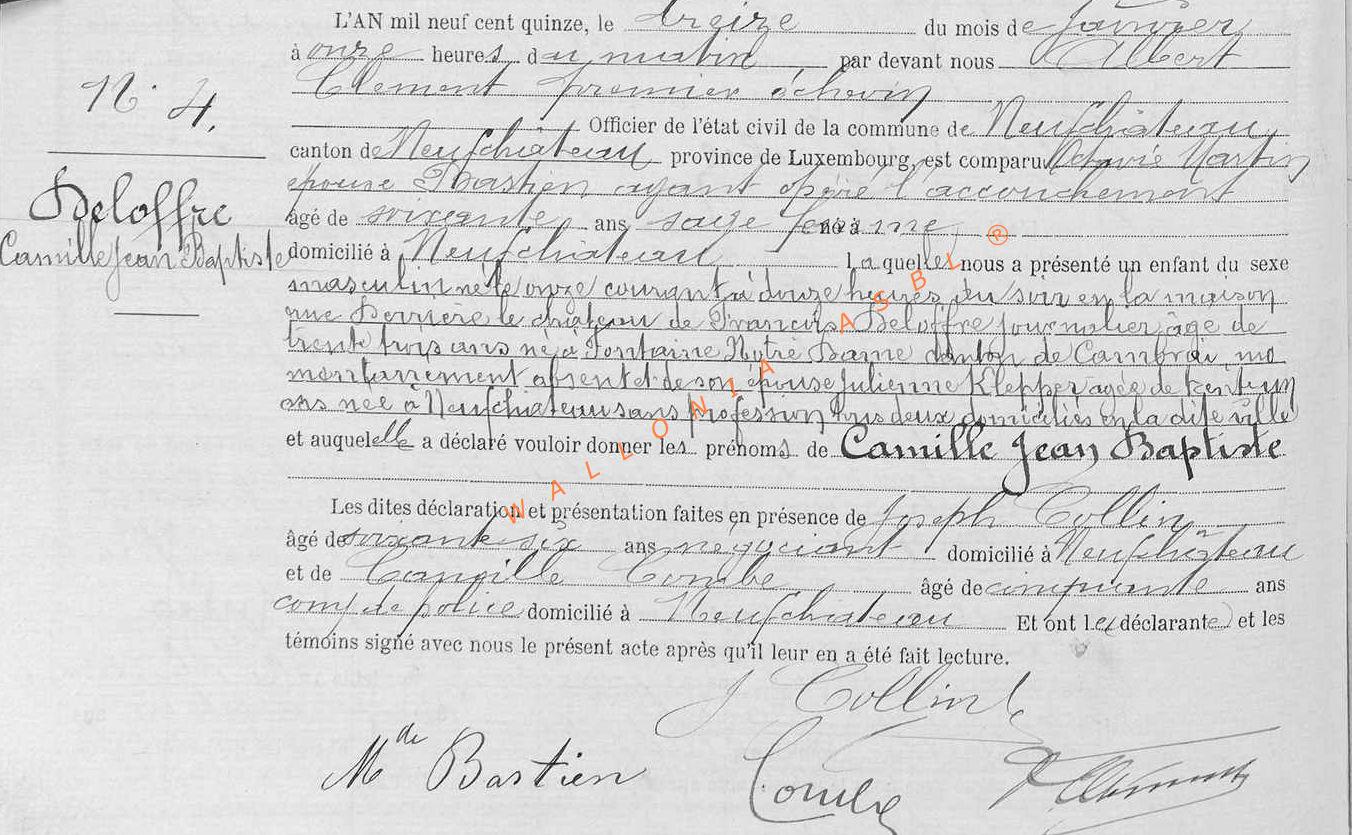 L'AN mil neuf cent quinze, le treize du mois de janvier
à onze heures du matin par devant nous Albert
Clement premier échevin
N° 4.
Officier de l'état civil de la commune de Neufchâteau
canton de Neufchâteau province de Luxembourg, est comparu Octavie Martin
épouse Bastien ayant opéré l'accouchement
Deloffre
âgé de soixante ans sage femme né à
Camille Jean Baptiste
domicilié à Neufchâteau laquelle nous a présenté un enfant du sexe
masculin né le onze courant à douze heures du soir en la maison
rue Derrière le château de François Deloffre journalier, âgé de
trente trois ans né à Fontaine Notre Dame canton de Cambrai, mo
mentanément absent et de son épouse Julienne Klepper agée de trente un
ans née à Neufchateau sans profession tous deux domiciliés en la dite ville
et auquel elle a déclaré vouloir donner les prénoms de Camille Jean Baptiste
Les dites déclaration et présentation faites en présence de Joseph Collin
âgé de soixante six ans négociant domicilié à Neufchâteau
et de Camille Combe âgé de cinquante ans
com. de police domicilié à Neufchateau Et ont les déclarante et les
témoins signé avec nous le présent acte après qu'il leur en a été fait lecture.
J Collin
Mde Bastien
Combe
AClement
WALLONIA ASBL ®